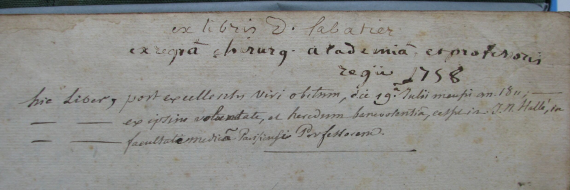 ex libris D. Sabatier
ex regiâ chirurg. academiâ et professoris
regii 1758
hic Liber, post excellentis viri obitum, die 19.ª Julii mensis an. 1811
ex ipsius voluntate, et heredum benevolentiâ, cessit in J. N. Hallé, in
facultate medicâ Parisiensis Professorem.